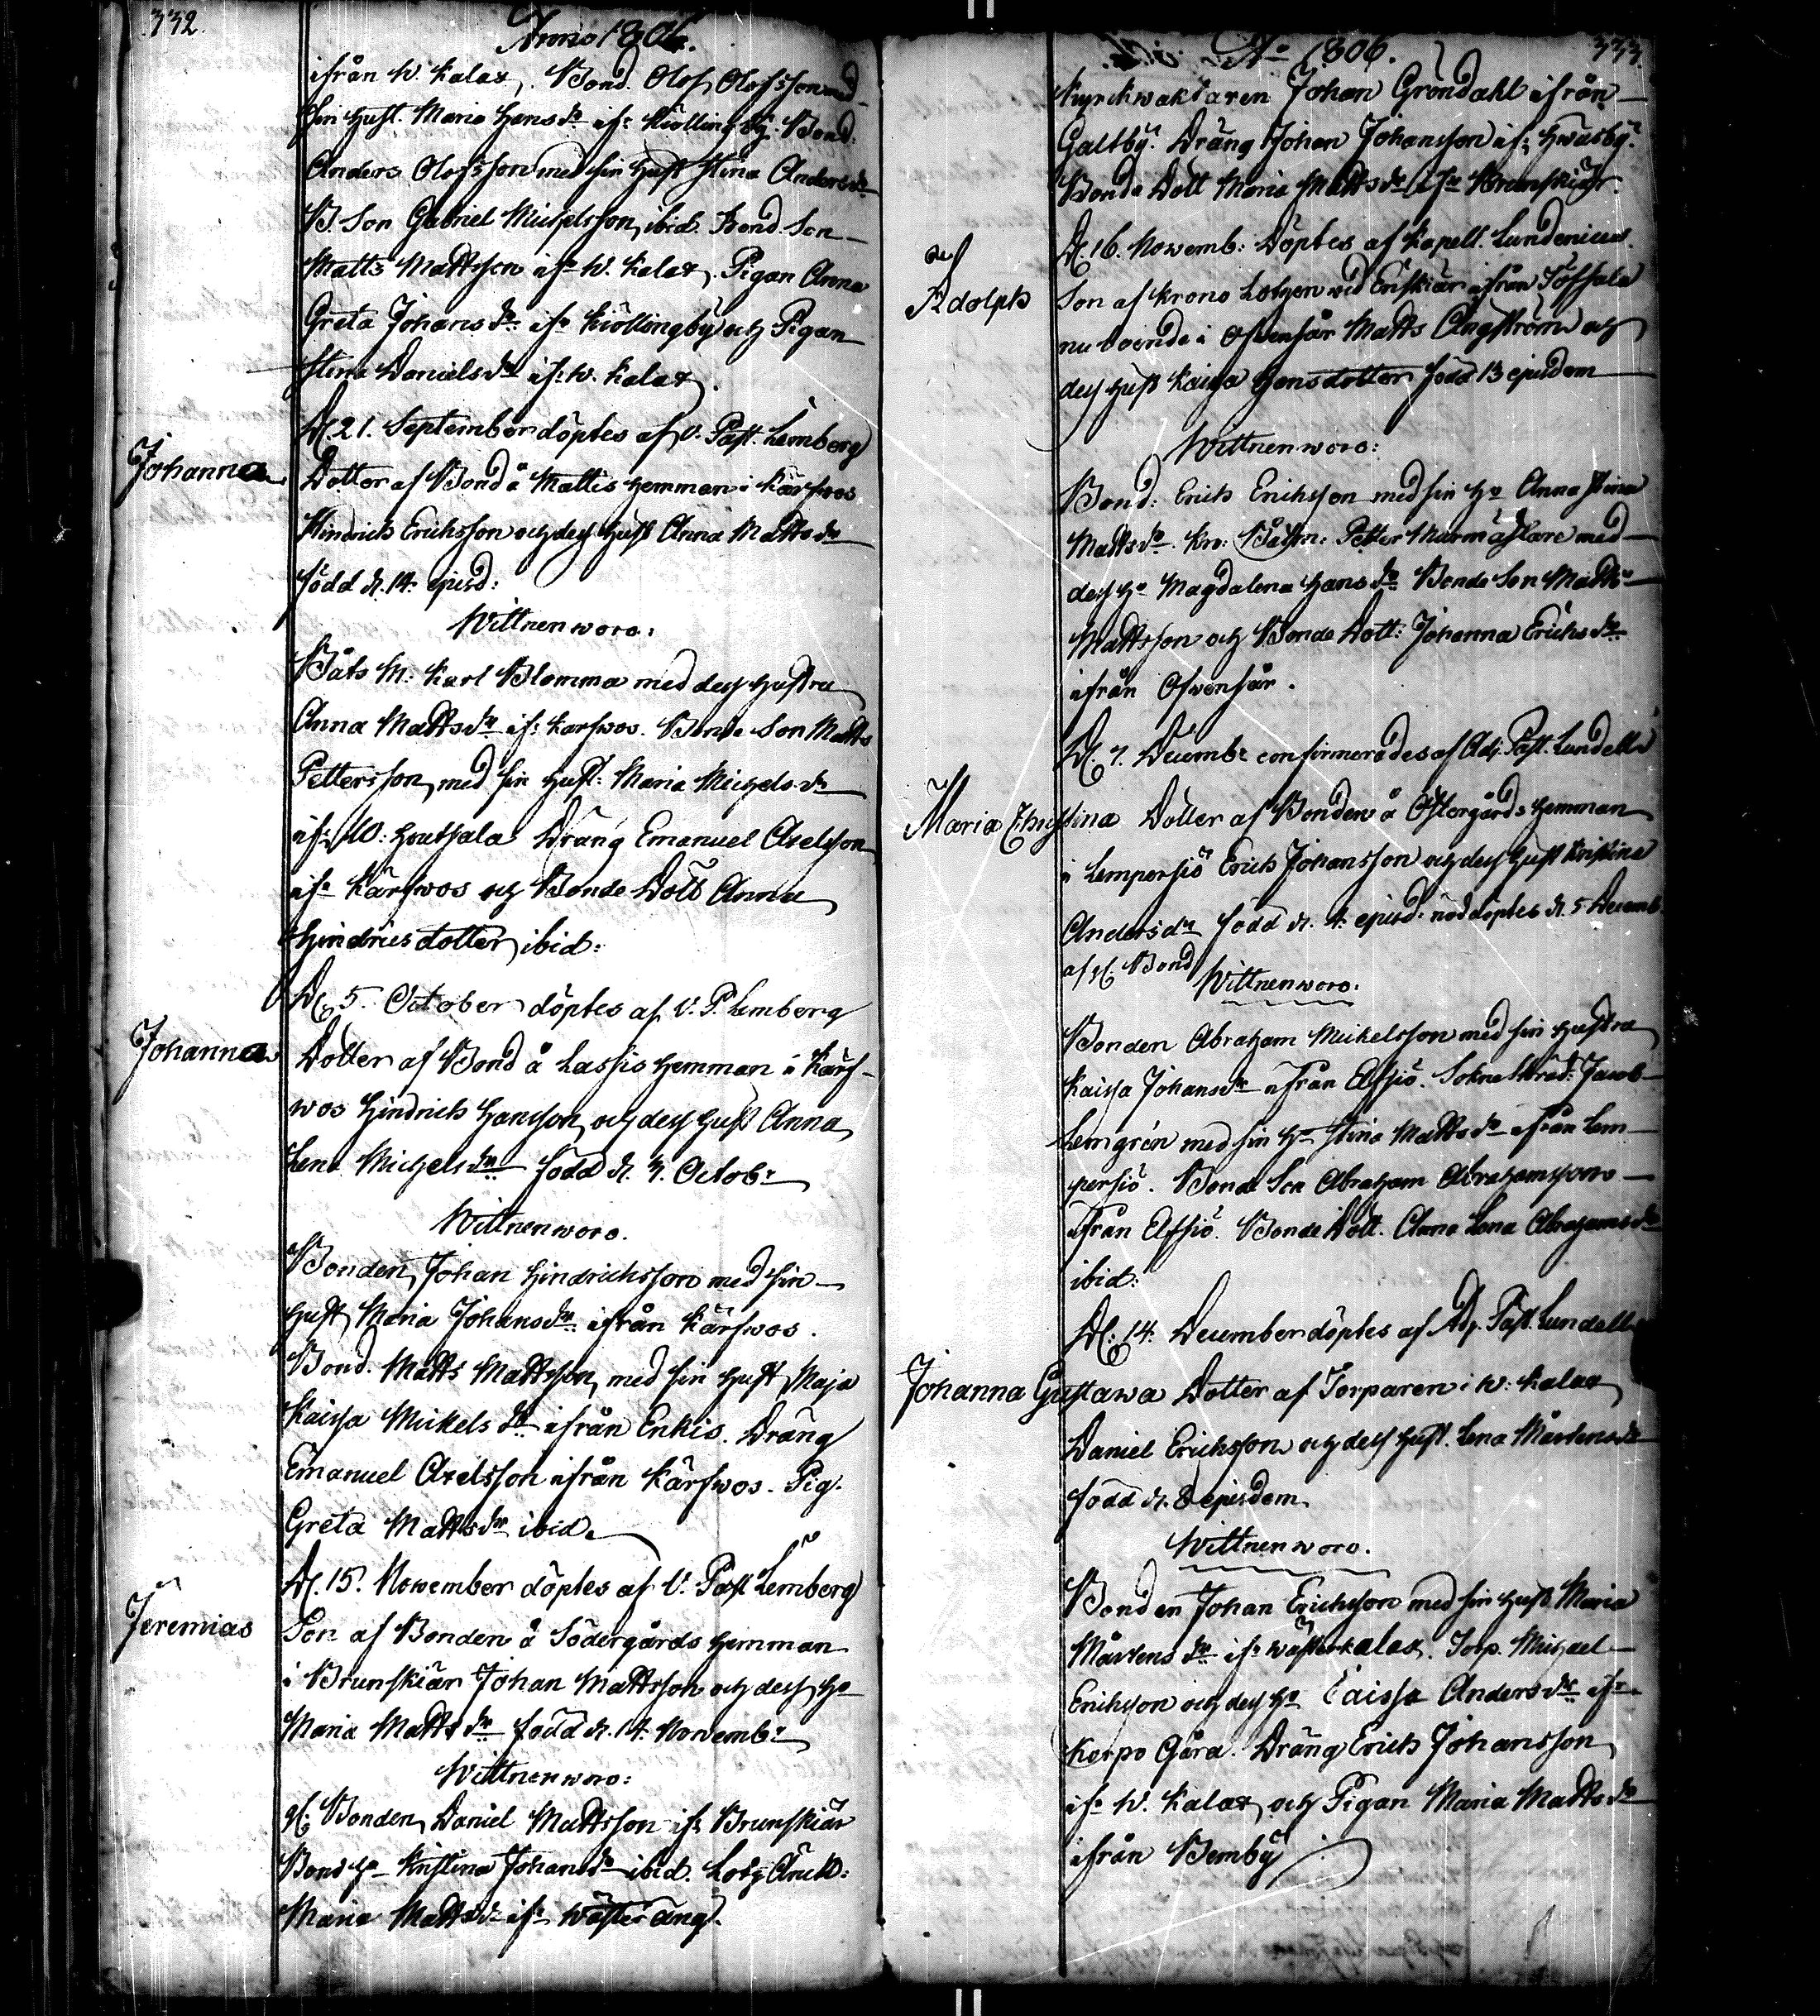 332.
Anno 1806.
ifrån W. Kalax. Bond. Olof Olofsson med
sin Hust. Maria Hansdr ifr Kiöllingby. Bond.
Anders Olofsson med sin Hust Stina Andersdr
B. Son Gabriel Michelsson, ibid. Bond. Son
Matts Mattsson ifr W. Kalax. Pigan Anna
Greta Johansdr ifr Kiöllingby och Pigan
Stina Danielsdr ifr W. Kalax.
D. 21. September döptes af V. Past. Lemberg
Johanna
Dotter af Bond å Mattis Hemman i Kärfwos
Hindrich Erichsson och dess Hust Anna Mattsdr
född d. 14. ejusd:
Wittnen woro:
Båts M: Karl Blomma med dess Hustru
Anna Mattsdr ifr Karfwos. Bonde Son Matts
Pettersson, med sin Hust: Maria Michelsdr
ifr W: Houtsala Dräng Emanuel Axelsson
ifr Kärfwos och Bonde Dott Anna
Hindricsdotter, ibid:
D. 5. October döptes af V. P. Lemberg
Johanna
Dotter af Bond å Lassis Hemman i Kärf-
wos Hindrich Hansson, och dess Hust Anna
Lena Michelsdr född d. 3. Octobr
Wittnen woro.
Bonden, Johan Hindrichsson med sin
Hust, Maria Johansdr ifrån Kärfwos.
Bond. Matts Mattsson, med sin Hust Maja
Kaisa Mickelsdr ifrån Enkis. Dräng
Emanuel Axelsson ifrån Kärfwos. Pig.
Greta Mattsdr ibid.
D. 15. November döptes af V. Past Lemberg
Jeremias
Son af Bonden å Södergårds Hemman
i Brunskiär Johan Mattsson och dess Ho
Maria Mattsdr född d. 14. Novembr
Wittnen woro:
Gl. Bonden, Daniel Mattsson ifr Brunskiär
Bond Ho Kristina Johansdr ibid. Lots
Maria Mattsdr ifr Wäster äng.
333.
Ao 1806.
Kyrckwaktaren Johan Gröndahl ifrån
Galtby. Dräng Johan Johansson ifr Hwasby.
Bonde Dott Maria Mattsdr ifr Brunskiär.
D. 16. Novemb: döptes af Kapell. Lundenius
Adolph
Son af Krono Lotzen wid Enskiär ifrån
nu boende i Ofvensår Matts Angström och
dess Hust Kaisa Hansdotter född 13 ejusdem
Wittnen woro:
Bond: Erich Erichsson med sin Ho Anna Stina
Mattsdr. Kr: Båtsm: Petter Murmästare med
dess Ho Magdalena Hansdr Bonde Son Matts
Mattsson och Bonde Dott: Johanna Erichsdr
ifrån Ofvensår.
D. 7. Decembr confirmerades af Adj. Past. Lundell
Maria Christina Dotter af Bonden å Östergårds Hemman
i Lempersiö Erich Johansson och dess Hust Kristina
Andersdr född d. 4. ejusd: nöddöptes d. 5 Decemb
af Gl. Bond
Wittnen woro.
Bonden Abraham Mickelsson med sin Hustru
Kaisa Johansdr ifrån Elfsiö. Jacob
Lemgrén med sin Ho Stina Mattsdr ifrån Lem-
persiö. Bonde Son Abraham Abrahamsson
ifrån Elfsiö. Bonde Dott. Anna Lena Abrahamsdr
ibid:
D: 14. December döptes af Adj. Past. Lundell
Johanna Gustawa Dotter af Torparen i W: Kalax
Daniel Erichsson och dess Hust. Lena Mårtensdr
född d. 8 ejusdem.
Wittnen woro.
Bonden Johan Erichsson med sin Hust Maria
Mårtensdr ifr Wästerkalax. Torp. Michael
Erichsson och dess Ho Caisa Andersdr ifr
Korpo Gård. Dräng Erich Johansson
ifr W. Kalax, och Pigan Maria Mattsdr
ifrån Bemby